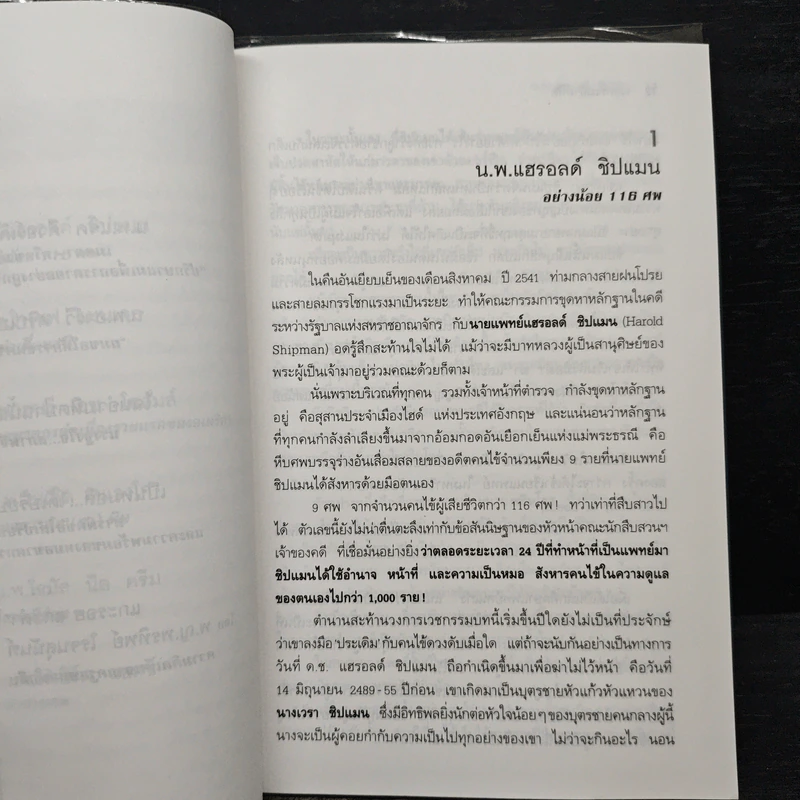 1
น.พ.แฮรอลด์ ชิปแมน
อย่างน้อย 116 ศพ
ในคืนอันเยียบเย็นของเดือนสิงหาคม ปี 2541 ท่ามกลางสายฝนโปรย
และสายลมกรรโชกแรงมาเป็นระยะ ทำให้คณะกรรมการขุดหาหลักฐานในคดี
ระหว่างรัฐบาลแห่งสหราชอาณาจักร กับนายแพทย์แฮรอลด์ ชิปแมน (Harold
Shipman) อดรู้สึกสะท้านใจไม่ได้ แม้ว่าจะมีบาทหลวงผู้เป็นสานุศิษย์ของ
พระผู้เป็นเจ้ามาอยู่ร่วมคณะด้วยก็ตาม
นั่นเพราะบริเวณที่ทุกคน รวมทั้งเจ้าหน้าที่ตำรวจ กำลังขุดหาหลักฐาน
อยู่ คือสุสานประจำเมืองไฮด์ แห่งประเทศอังกฤษ และแน่นอนว่าหลักฐาน
ที่ทุกคนกำลังลำเลียงขึ้นมาจากอ้อมกอดอันเยือกเย็นแห่งแม่พระธรณี คือ
หีบศพบรรจุร่างอันเสื่อมสลายของอดีตคนไข้จำนวนเพียง 9 รายที่นายแพทย์
ชิปแมนได้สังหารด้วยมือตนเอง
9 ศพ จากจำนวนคนไข้ผู้เสียชีวิตกว่า 116 ศพ! ทว่าเท่าที่สืบสาวไป
ได้ ตัวเลขนี้ยังไม่น่าตื่นตะลึงเท่ากับข้อสันนิษฐานของหัวหน้าคณะนักสืบสวนฯ
เจ้าของคดี ที่เชื่อมั่นอย่างยิ่งว่าตลอดระยะเวลา 24 ปีที่ทำหน้าที่เป็นแพทย์มา
ชิปแมนได้ใช้อำนาจ หน้าที่ และความเป็นหมอ สังหารคนไข้ในความดูแล
ของตนเองไปกว่า 1,000 ราย!
ตำนานสะท้านวงการเวชกรรมบทนี้เริ่มขึ้นปีใดยังไม่เป็นที่ประจักษ์
ว่าเขาลงมือ 'ประเดิม' กับคนไข้ดวงดับเมื่อใด แต่ถ้าจะนับกันอย่างเป็นทางการ
วันที่ ด.ช. แฮรอลด์ ชิปแมน ถือกำเนิดขึ้นมาเพื่อฆ่าไม่ไว้หน้า คือวันที่
14 มิถุนายน 2489 - 55 ปีก่อน เขาเกิดมาเป็นบุตรชายหัวแก้วหัวแหวนของ
นางเวรา ชิปแมน ซึ่งมีอิทธิพลยิ่งนักต่อหัวใจน้อยๆ ของบุตรชายคนกลางผู้นี้
นางจะเป็นผู้คอยกำกับความเป็นไปทุกอย่างของเขา ไม่ว่าจะกินอะไร นอน